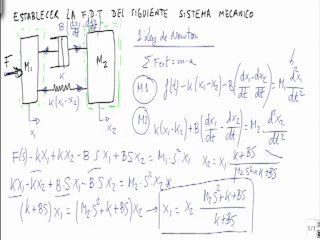 ESTABLECER LA F.D.T DEL SIGUIENTE SISTEMA MECANICO
B(dx1/dt - dx2/dt)
1 Ley de Newton
∑Fext = m·a
F
M1
M2
K
K(x1-x2)
x1
x2
(M1) f(t) - K(x1-x2) - B(dx1/dt - dx2/dt) = M1 d²x1/dt²
(M2) K(x1-x2) + B(dx1/dt - dx2/dt) = M2 · d²x2/dt²
F(s) - KX1 + KX2 - BSX1 + BSX2 = M1·S²X1
X2 = X1 · (K+BS)/(M2S²+K+BS)
KX1 - KX2 + BSX1 - BSX2 = M2·S²X2
(K+BS)X1 = (M2S²+K+BS)X2 → X1 = X2 (M2S²+K+BS)/(K+BS)